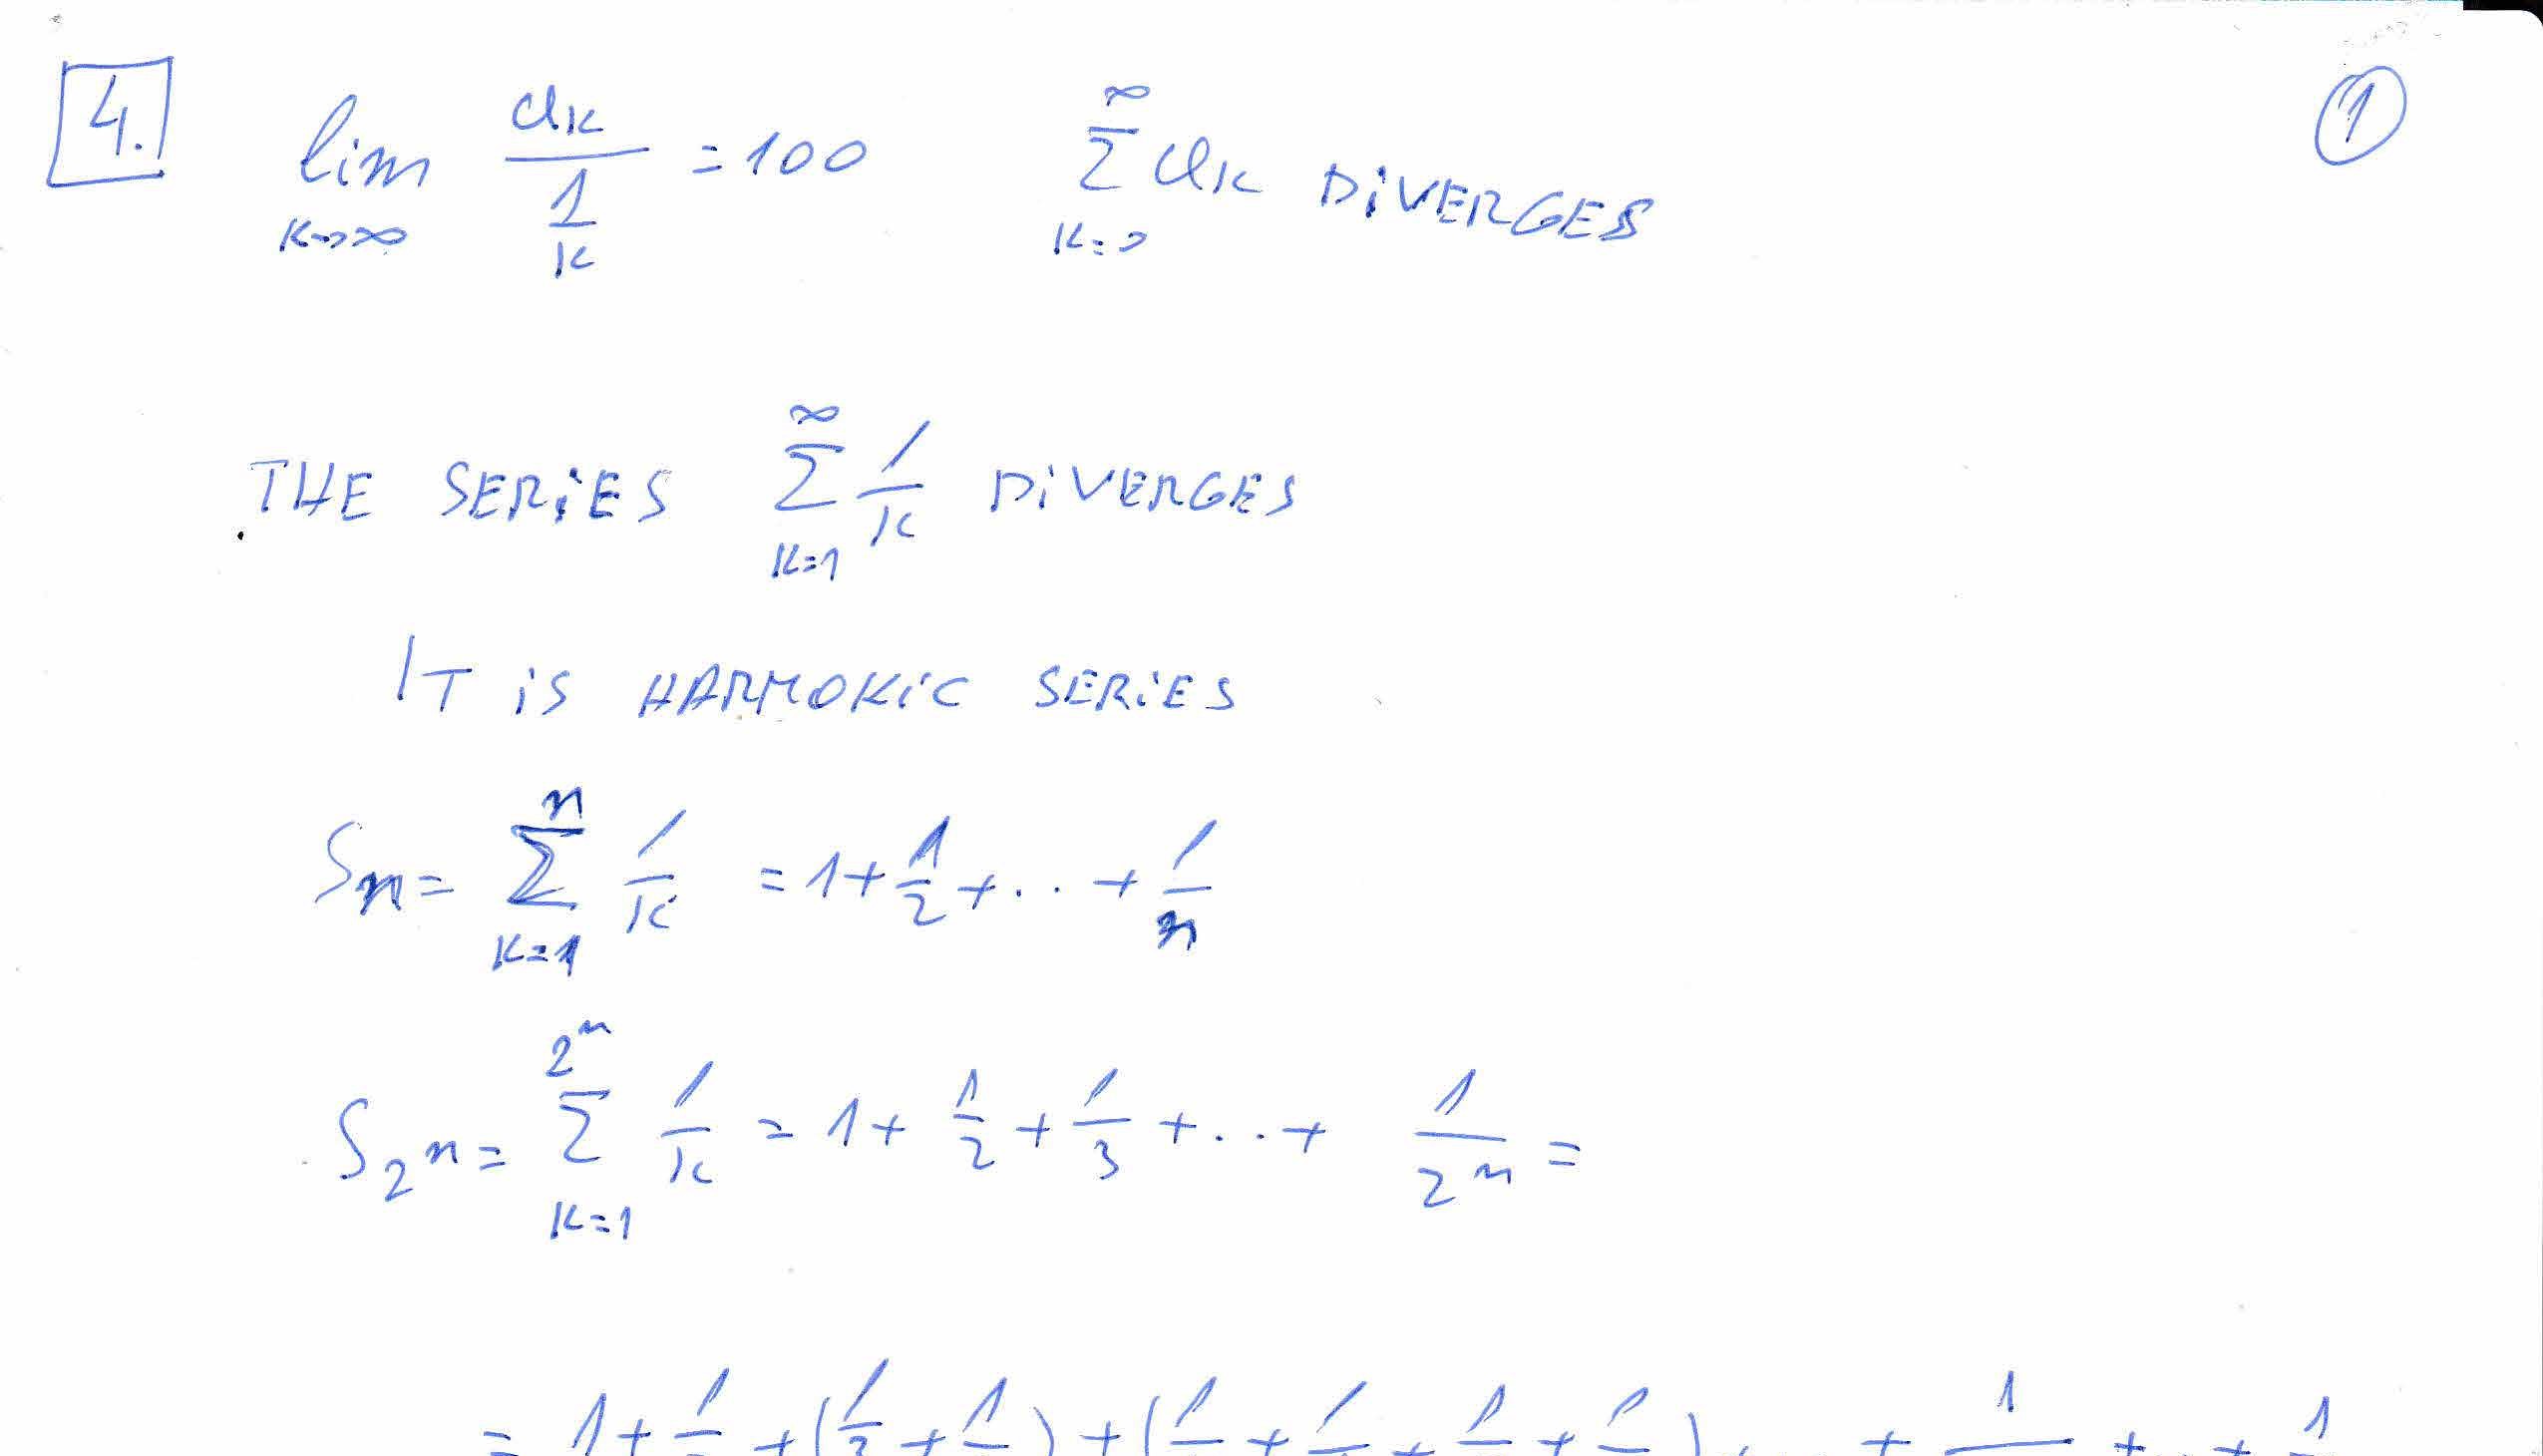 4. lim_{K→∞} a_K / (1/K) = 100   ∞ Σ_{K=0} a_K DiVERGES   1
THE SERiES Σ_{K=1}^{∞} 1/K DiVERGES
IT iS HARMOKiC SERiES
S_n = Σ_{K=1}^{n} 1/K = 1 + 1/2 + .. + 1/n
S_{2^n} = Σ_{K=1}^{2^n} 1/K = 1 + 1/2 + 1/3 + ... + 1/2^n =